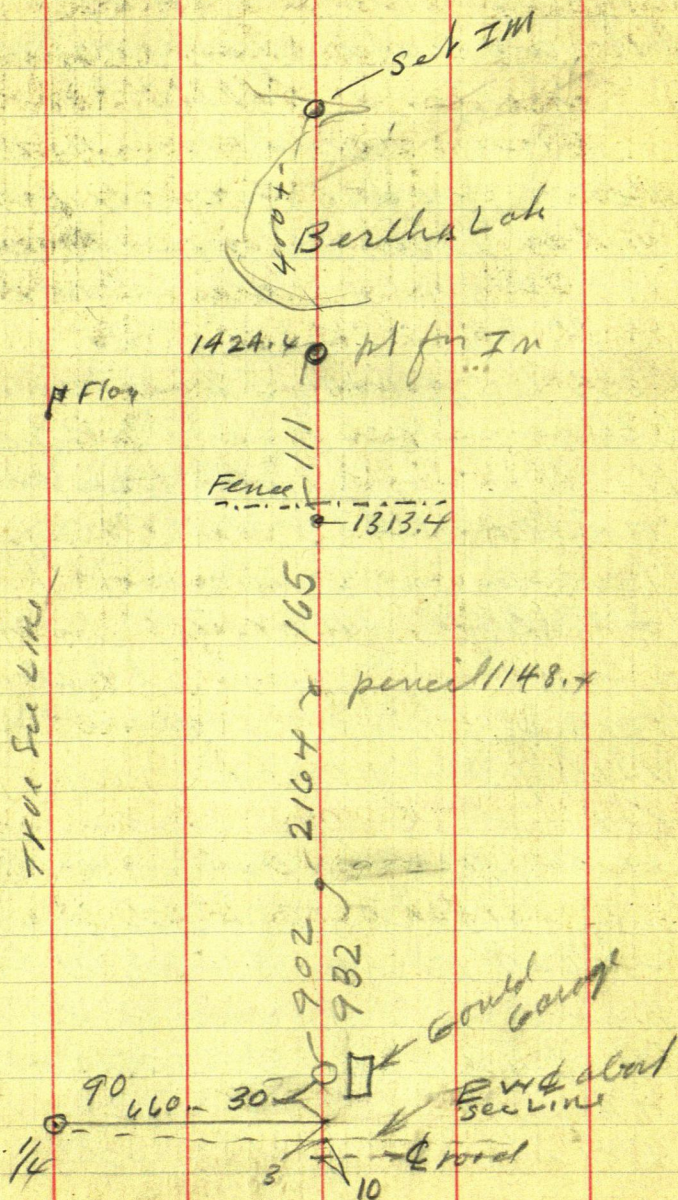 set IM
400+-
Bertha Lak
1424.4
pt for Im
Flag
111
Fence
1313.4
165
pencil 1148.x
True Sec Line
2164
902
932
Gould
Garage
90
660
30
E W ℄ about
Sec Line
1/4
℄ road
3
10